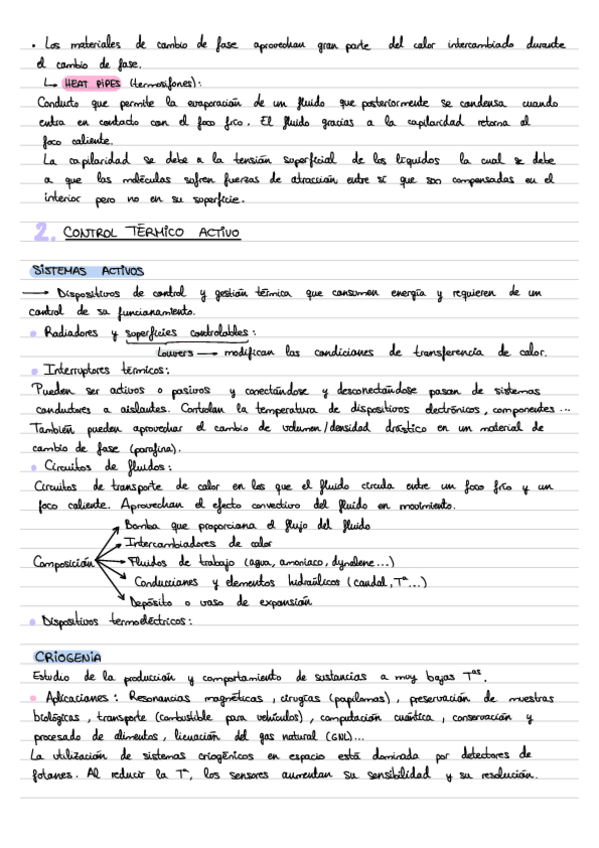 • Los materiales de cambio de fase aprovechan gran parte del calor intercambiado durante
el cambio de fase.
↳ HEAT PIPES (termosifones):
Conducto que permite la evaporación de un fluido que posteriormente se condensa cuando
entra en contacto con el foco frío. El fluido gracias a la capilaridad retorna al
foco caliente.
La capilaridad se debe a la tensión superficial de los líquidos la cual se debe
a que las moléculas sufren fuerzas de atracción entre sí que son compensadas en el
interior pero no en su superficie.
2. CONTROL TÉRMICO ACTIVO
SISTEMAS ACTIVOS
→ Dispositivos de control y gestión térmica que consumen energía y requieren de un
control de su funcionamiento.
• Radiadores y superficies controlables:
Louvers → modifican las condiciones de transferencia de calor.
• Interruptores térmicos:
Pueden ser activos o pasivos y conectándose y desconectándose pasan de sistemas
conductores a aislantes. Controlan la temperatura de dispositivos electrónicos, componentes...
También pueden aprovechar el cambio de volumen/densidad drástico en un material de
cambio de fase (parafina).
• Circuitos de fluidos:
Circuitos de transporte de calor en los que el fluido circula entre un foco frío y un
foco caliente. Aprovechan el efecto convectivo del fluido en movimiento.
Bomba que proporciona el flujo del fluido
Intercambiadores de calor
Composición Fluidos de trabajo (agua, amoniaco, dynalene...)
Conducciones y elementos hidraúlicos (caudal, Tª...)
Depósito o vaso de expansión
• Dispositivos termoeléctricos:
CRIOGENIA
Estudio de la producción y comportamiento de sustancias a muy bajas Tªs.
• Aplicaciones: Resonancias magnéticas, cirugías (papilomas), preservación de muestras
biológicas, transporte (combustible para vehículos), computación cuántica, conservación y
procesado de alimentos, licuación del gas natural (GNL)...
La utilización de sistemas criogénicos en espacio está dominada por detectores de
fotones. Al reducir la Tª, los sensores aumentan su sensibilidad y su resolución.